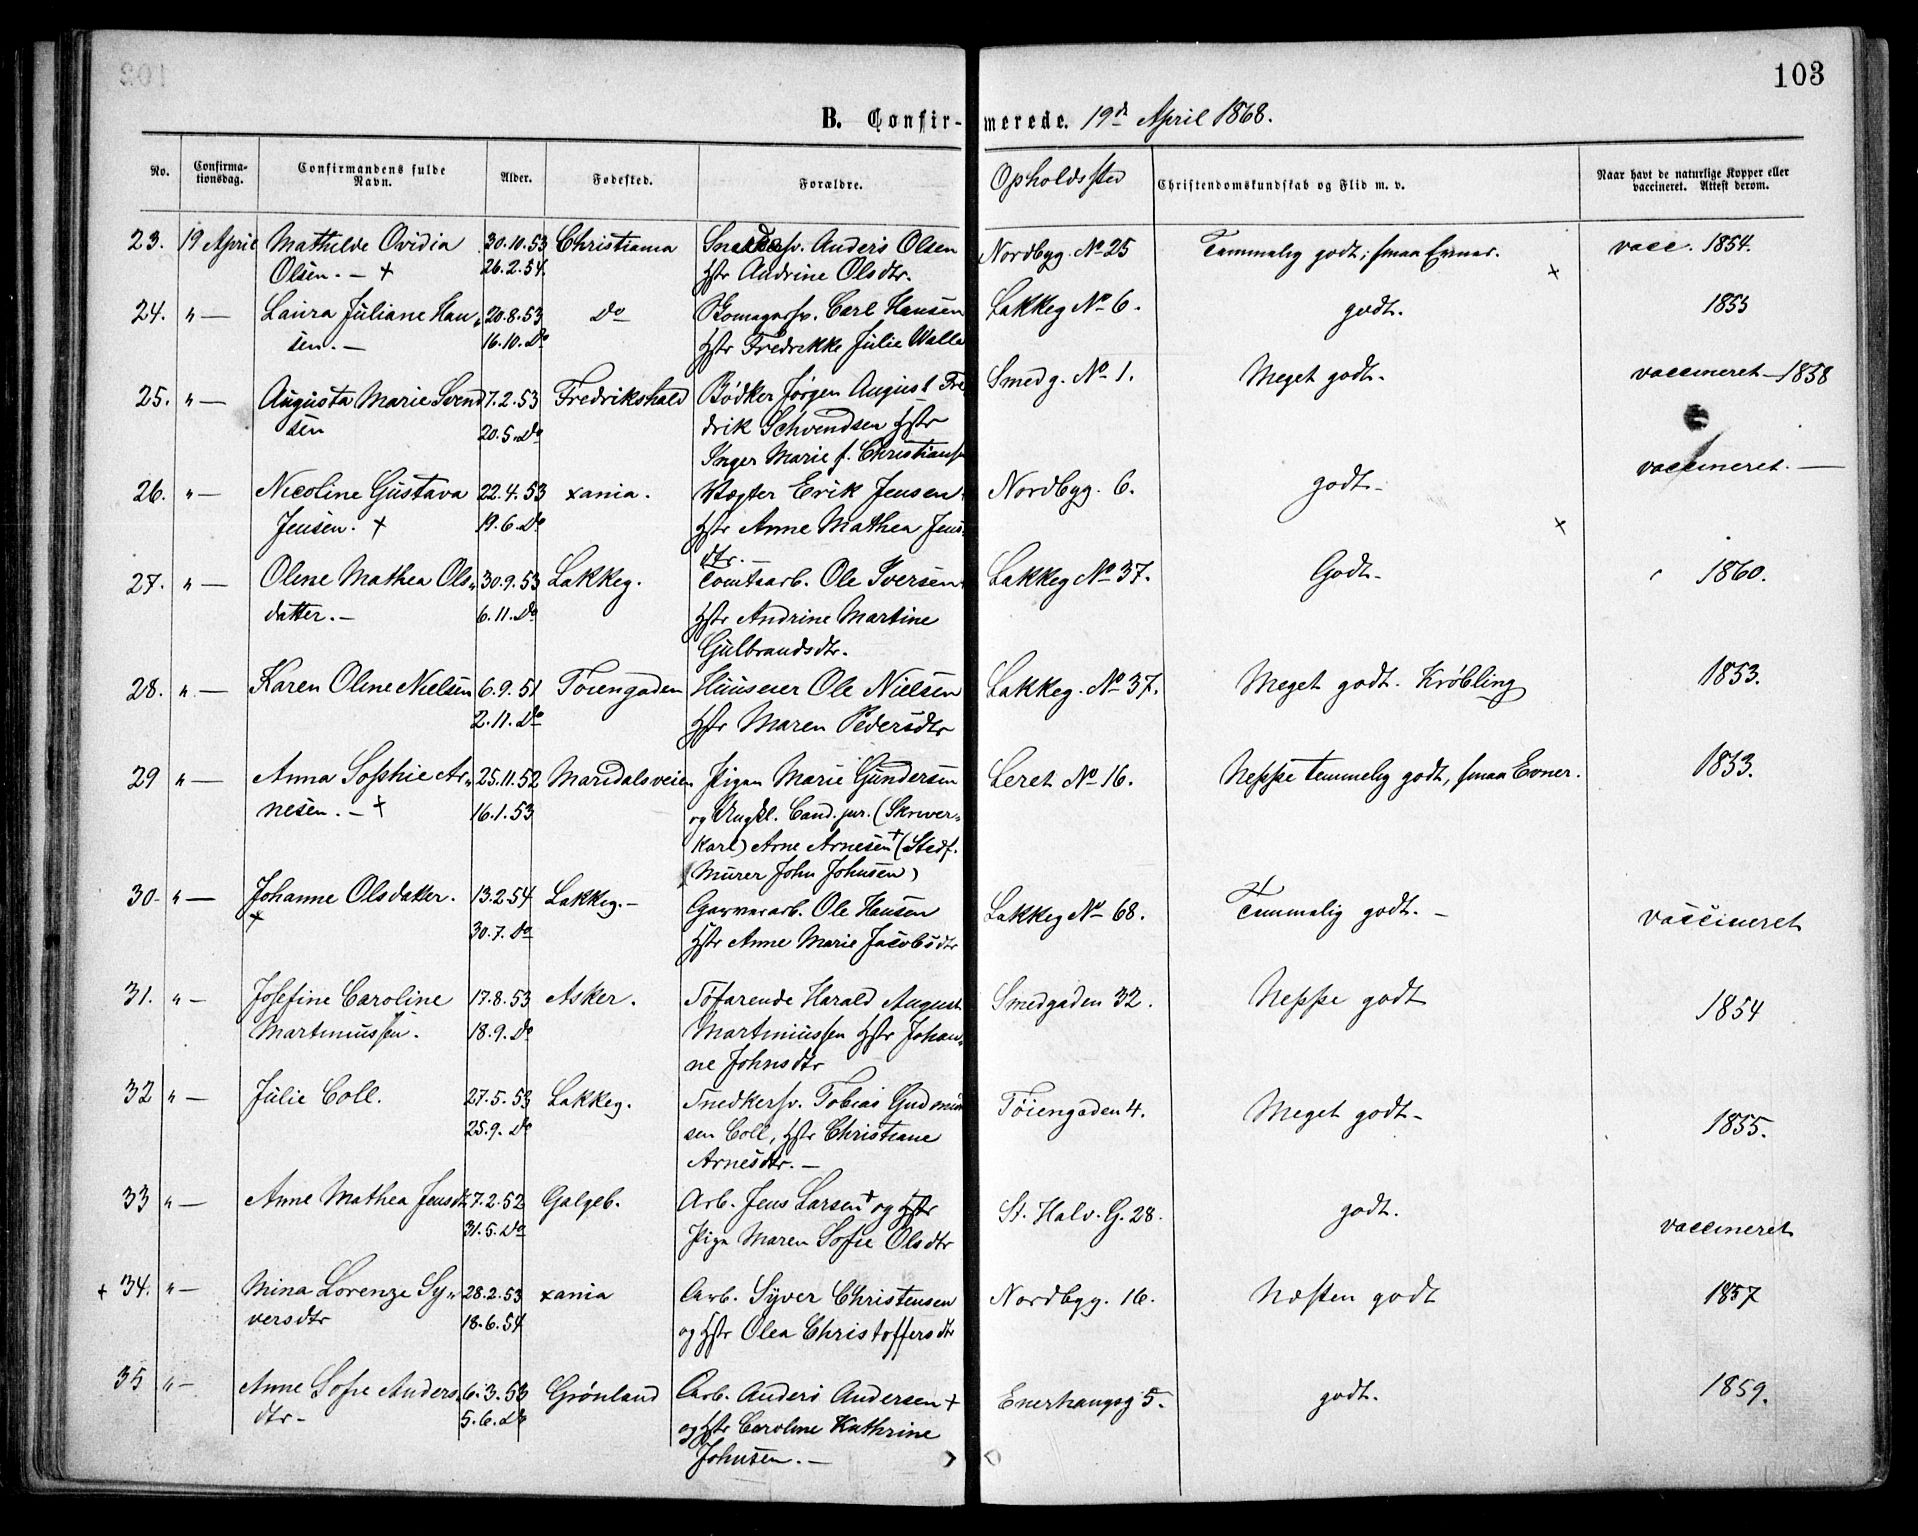 103
B. Confirmerede. 19de April 1868.
No. Confirmationsdag. Confirmandens fulde Navn. Alder. Fødested. Forældre. Opholdssted Christendomskundskab og Flid m. v. Naar havt de naturlige Kopper eller vaccineret. Attest derom.
23. 19 April Mathilde Ovidia 30.10.53 Christiania Anders Olsen Nordbyg. No 25 Temmelig godt; smaa Evner. vacc. 1854.
Olsen. — + 26.2.54. Hstr Andrine Olsdtr. ×
24. " — Laura Juliane Han- 20.8.53 Do Carl Hansen Lakkeg No 6. godt. 1855
sen. — 16.10. Do Hstr Fredrikke Julie Walle
25. " — Augusta Marie Svend 7.2.53 Fredrikshald Bødker Jørgen August Fre Smedg. No 1. Meget godt. vaccineret — 1858
sen 20.5. Do drik Schvendsen Hstr
Inger Marie f. Christians
26. " — Nicoline Gustava 22.4.53 xania. Vægter Erik Jensen Nordbyg. 6. godt. vaccineret. —
Jensen. + 19.6. Do Hstr Anne Mathea Jens ×
dtr. —
27. " — Oline Mathea Ols- 30.9.53 Lakkeg. Ole Iversen Lakkeg No 37. Godt. 1860.
datter. — 6.11. Do Hstr Andrine Martine
Gulbrandsdtr.
28. " — Karen Oline Nielsen 6.9.51 Tøiengaden Huuseier Ole Nielsen Lakkeg. No 37. Meget godt. Krøbling 1853.
2.11. Do Hstr Maren Pedersdtr
29 " — Anna Sophie Ar- 25.11.52 Maridalsveien Pigen Marie Gundersen Leret No 16. Neppe temmelig godt, smaa Evner. 1853.
nesen. — + 16.1.53 og Ungkl. Cand. jur. (Skriver-
karl) Arne Arnesen + (Stedf.
Murer John Johnsen)
30. " — Johanne Olsdatter. 13.2.54 Lakkeg. — Garverarb. Ole Hansen Lakkeg No 68. Temmelig godt. — vaccineret
+ 30.7. Do Hstr Anne Marie Jacobsdtr
31. " — Josefine Caroline 17.8.53 Asker. Søfarende Harald August Smedgaden 32. Neppe godt 1854
Martiniussen. 18.9. Do Martiniussen Hstr Johan-
ne Johnsdtr
32 " — Julie Coll. 27.5.53 Lakkeg. Snedkersv. Tobias Gudmun Tøiengaden 4. Meget godt — 1855.
25.9. Do sen Coll, Hstr Christiane
Arnesdtr. —
33 " — Anne Mathea Jensdtr 7.2.52 Galgeb. Arb. Jens Larsen + og Hstr St. Halv. G. 28. godt. vaccineret
31.5. Do Pige Maren Sofie Olsdtr
+ 34. " — Mina Lorenze Sy- 28.2.53 xania Arb. Syver Christensen Nordbyg. 16. Næsten godt 1857
versdtr 18.6.54 og Hstr Olea Christoffersdtr
35 " — Anne Sofie Anders 6.3.53 Grønland Arb. Anders Andersen + Enerhaugsg 5. godt. 1859.
dtr — 5.6. Do og Hstr Caroline Kathrine
Johnsen. —